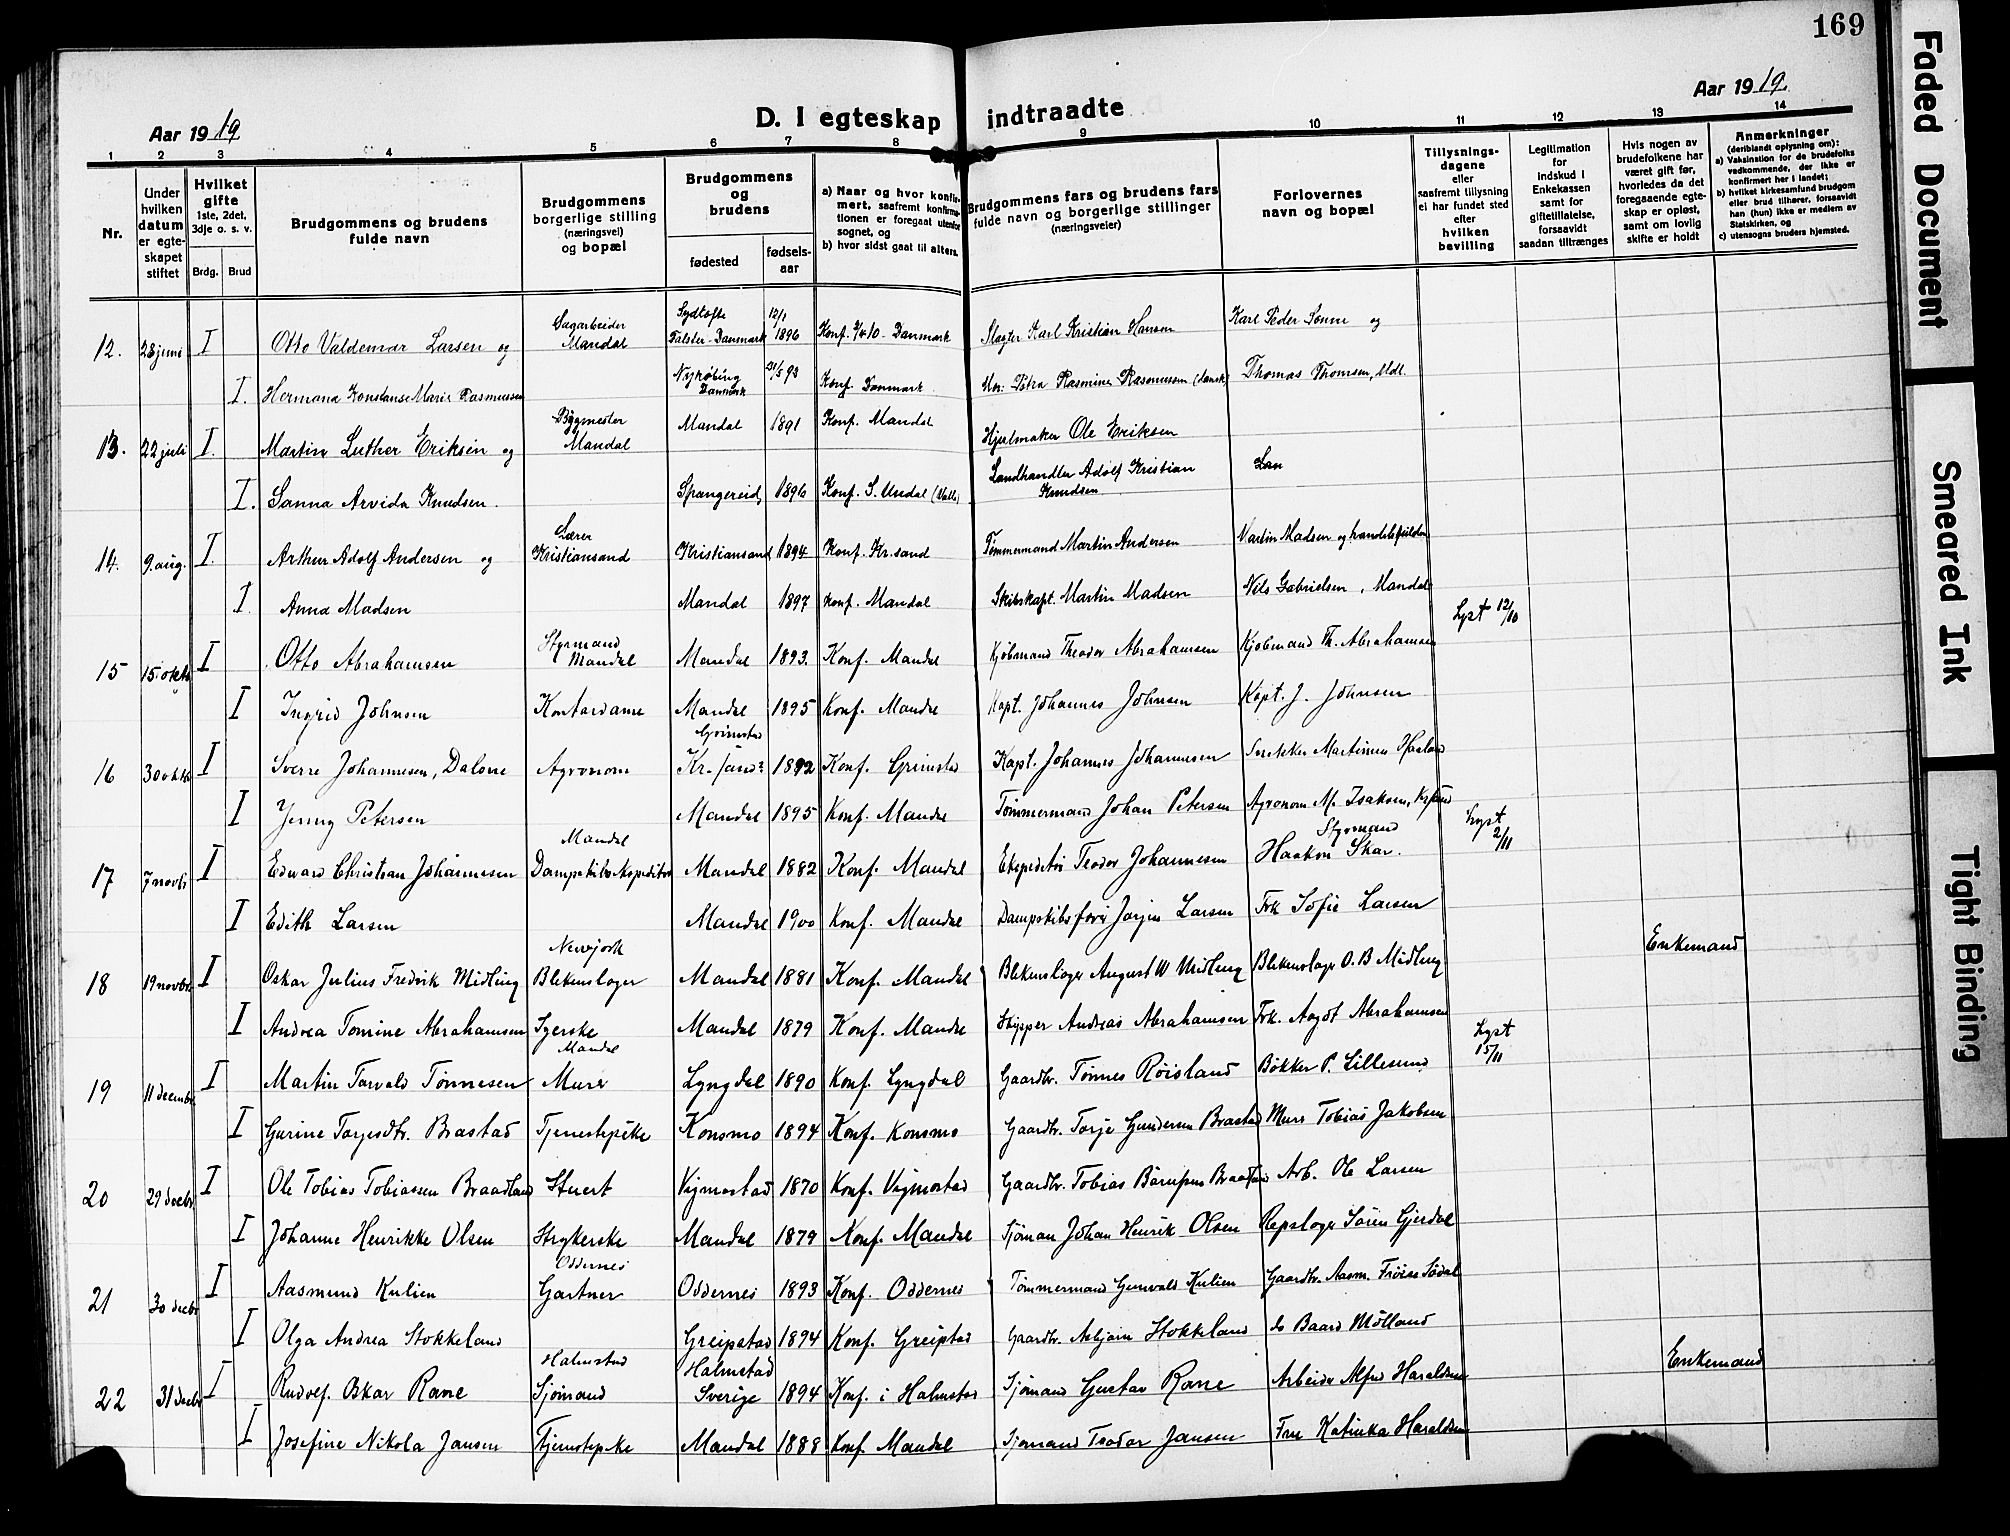 169
Aar 1919
Aar 1919
D. I egteskap indtraadte
1 2 3 4 5 6 7 8 9 10 11 12 13 14
Nr.
Under hvilken datum er egteskapet stiftet
Hvilket gifte 1ste, 2det, 3dje o. s. v.
Brdg. Brud
Brudgommens og brudens fulde navn
Brudgommens borgerlige stilling (næringsvei) og bopæl
Brudgommens og brudens
fødested
fødselsaar
a) Naar og hvor konfirmert, saafremt konfirmationen er foregaat utenfor sognet, og
b) hvor sidst gaat til alters.
Brudgommens fars og brudens fars fulde navn og borgerlige stillinger (næringsveier)
Forlovernes navn og bopæl
Tillysningsdagene eller saafremt tillysning ei har fundet sted efter hvilken bevilling
Legitimation for indskud i Enkekassen samt for giftetillatelse, forsaavidt saadan tiltrænges
Hvis nogen av brudefolkene har været gift før, hvorledes da det foregaaende egteskap er opløst, samt om lovlig skifte er holdt
Anmerkninger (deriblandt oplysning om):
a) Vaksination for de brudefolks vedkommende, der ikke er konfirmert her i landet;
b) hvilket kirkesamfund brudgom eller brud tilhører, forsaavidt han (hun) ikke er medlem av Statskirken, og
c) utensogns bruders hjemsted.
12. 28 juni I Otto Valdemar Larsen og Sagarbeider Mandal Sydtofte Falster-Danmark 12/1 1896 Konf. 3/4 10 - Danmark Slagter Karl Kristian Hansen Karl Peder Sonne og
I. Hermana Konstanse Marie Rasmussen Nykøbing Danmark 21/5 93 Konf. Danmark Petra Rasmine Rasmussen (dansk) Thomas Thomsen, Mdl.
13. 22 juli I. Martin Luther Eriksen og Bygmester Mandal Mandal 1891 Konf. Mandal Hjulmaker Ole Eriksen
I. Sanna Arvida Knudsen. Spangereid 1896 Konf. S. Undal (Valle) Landhandler Adolf Kristian Knudsen
14. 9. aug. I. Arthur Adolf Andersen og Lærer Kristiansand Kristiansand 1894 Konf. Kr.sand Tømmermand Martin Andersen Martin Madsen og
I. Anna Madsen Mandal 1897 Konf. Mandal Skibskapt. Martin Madsen Nils Gabrielsen, Mandal
15 15. oktb I Otto Abrahamsen Styrmand Mandal Mandal 1893. Konf. Mandal Kjøbmand Theodor Abrahamsen Kjøbmand Th. Abrahamsen Lyst 12/10
I Ingrid Johnsen Kontordame Mandal 1895 Konf. Mandal Kapt. Johannes Johnsen Kapt. J. Johnsen
16 30 oktb I Sverre Johannesen, Dalove Agronom Grimstad Kr. sand? 1892 Konf. Grimstad Kapt. Johannes Johannesen Martinius
I Jenny Petersen Mandal 1895 Konf. Mandal Tømmermand Johan Petersen Agronom M. Isaksen, Kr.sand
17 7 novbr I Edward Christian Johannesen Mandal Dampskibsekspeditør Mandal 1882 Konf. Mandal Ekspeditør Teodor Johannesen Styrmand Haakon Skar. Lyst 2/11
I Edith Larsen Mandal 1900 Konf. Mandal Dampskibsfører Jørgen Larsen Frk Sofie Larsen
18 19 novbr I Oskar Julius Fredrik Midling Newjork Blekenslager Mandal 1881 Konf. Mandal Blekenslager August W Midling Blekenslager O. B Midling Enkemand
I Andrea Tomine Abrahamsen Syerske Mandal 1879 Konf. Mandal Skipper Andreas Abrahamsen Frk. Aagot Abrahamsen Lyst 15/11
19 11 decembr I Martin Torvald Tønnesen Mandal Murer Lyngdal 1890 Konf. Lyngdal Gaardbr. Tønnes Røisland Bøkker P. Lillesund
I Gurine Torjesdtr. Brastad Tjenestepike Konsmo 1894 Konf. Konsmo Gaardbr. Torje Gundersen Brastad Murer Tobias Jakobsen
20 29 decbr I Ole Tobias Tobiassen Braadland Stuert Vigmostad 1870 Konf. Vigmostad Gaardbr. Tobias Braadland Arb. Ole Larsen
I Johanne Henrikke Olsen Strykerske Mandal 1879 Konf. Mandal Sjøman Johan Henrik Olsen Repslager Søren Gjerdal
21 30 decbr I Aasmund Kulien Oddernes Gartner Oddernes 1893 Konf. Oddernes Tømmermand Gunvald Kulien Gaardbr. Aasm. Frøise Sødal
I Olga Andrea Stokkeland Greipstad 1894 Konf. Greipstad Gaardbr. Asbjørn Stokkeland do Baard Mølland
22 31 decbr I Rudolf Oskar Rane Halmstad Sjømand Halmstad Sverige 1894 Konf. i Halmstad Sjømand Gustav Rane Arbeider Alfred Haraldsen Enkemand
I Josefine Nikola Jansen Tjenestepike Mandal 1888 Konf. Mandal Sjømand Teodor Jansen Fru Katinka Haraldsen
Faded Document
Smeared Ink
Tight Binding